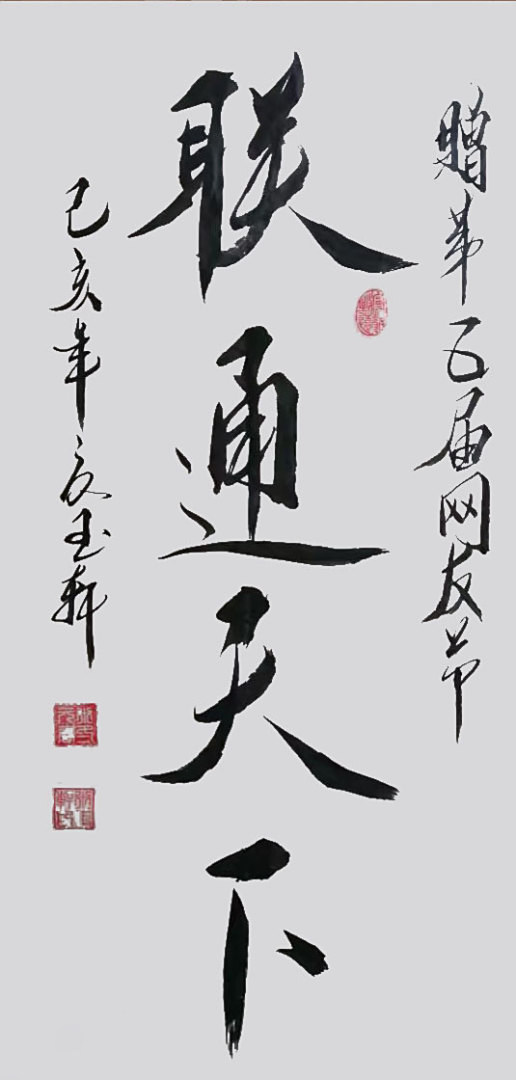 赠第五届网友节
联通天下
己亥年友玉轩